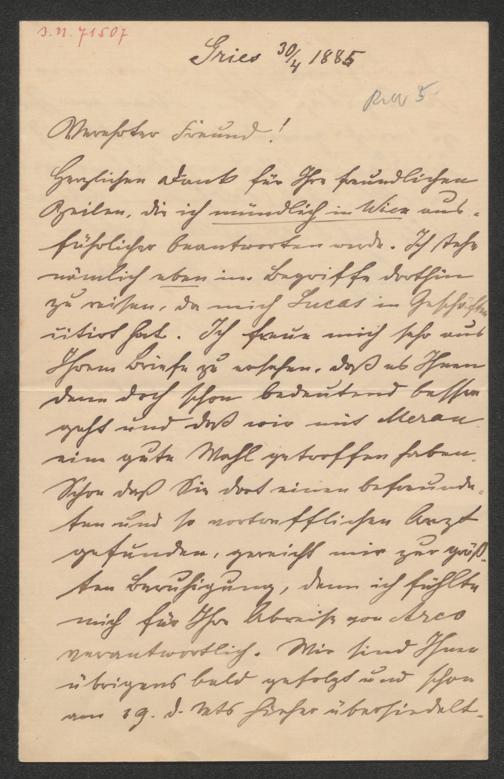 J. N. 71507
Gries 30/4 1885
Verehrter Freund!
Herzlichen Dank für Ihre freundlichen
Zeilen, die ich mündlich in Wien aus-
führlicher beantworten werde. Ich stehe
nämlich eben im Begriffe dorthin
zu reisen, da mich Lucas in Geschäften
citirt hat. Ich freue mich sehr aus
Ihrem Briefe zu ersehen, daß es Ihnen
denn doch schon bedeutend besser
geht und daß wir mit Meran
eine gute Wahl getroffen haben.
Schon daß Sie dort einen befreunde-
ten und so vortrefflichen Arzt
gefunden, gereicht mir zur größ-
ten Beruhigung, denn ich fühlte
mich für Ihre Abreise von Arco
verantwortlich. Wir sind Ihnen
übrigens bald gefolgt und schon
am 19. d. Mts hieher übersiedelt.